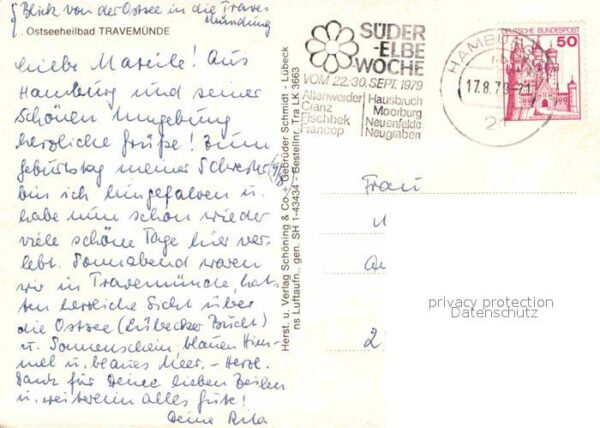 Blick von der Ostsee in die Trave-
Mündung
Ostseeheilbad TRAVEMÜNDE
Liebe Mareile! Aus
Hamburg und seiner
schönen Umgebung
herzliche Grüße! Zum
Geburtstag meiner Schwester
bin ich hingefahren u.
habe nun schon wieder
viele schöne Tage hier ver-
lebt. Sonnabend waren
wir in Travemünde, hat-
ten herrliche Sicht über
die Ostsee (Lübecker Bucht)
u. Sonnenschein, blauen Him-
mel u. blaues Meer. - Herzl.
Dank für Deine lieben Zeilen
u. weiterhin alles Gute!
Deine Rita
Herst. u. Verlag Schöning & Co. + Gebrüder Schmidt - Lübeck
ns Luftaufn., gen. SH 1-43434 - Bestellnr. Tra LK 3663
SÜDER
-ELBE
WOCHE
VOM 22.-30. SEPT. 1979
Altenwerder Hausbruch
Cranz Moorburg
Fischbek Neuenfelde
Francop Neugraben
HAMBURG
17.8.79-21
21
DEUTSCHE BUNDESPOST
50
Frau
privacy protection
Datenschutz